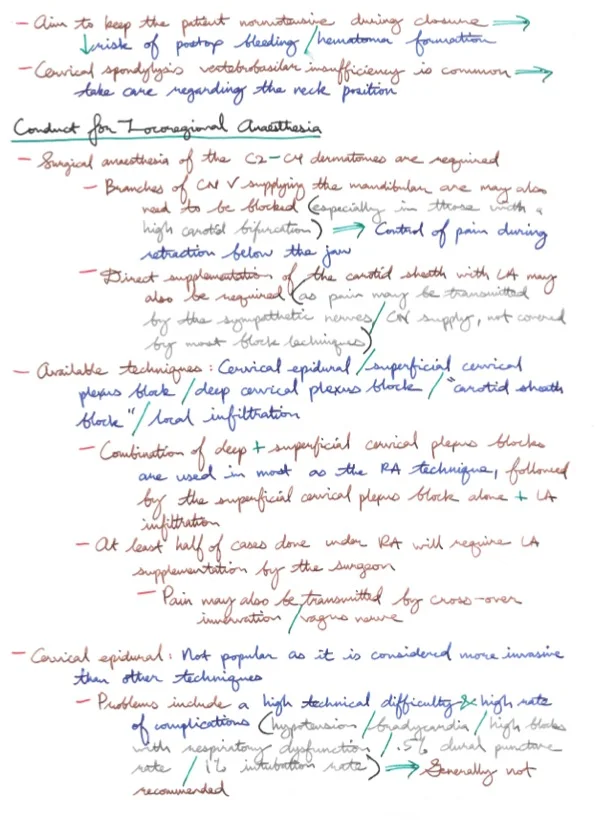 - Aim to keep the patient normotensive during closure ⟹
↓ risk of postop bleeding / hematoma formation
- Cervical spondylysis vertebrobasilar insufficiency is common ⟹
take care regarding the neck position
Conduct for Locoregional Anaesthesia
- Surgical anaesthesia of the C2-C4 dermatomes are required
- Branches of CN V supplying the mandibular are may also
need to be blocked (especially in those with a
high carotid bifurcation) ⟹ Control of pain during
retraction below the jaw
- Direct supplementation of the carotid sheath with LA may
also be required (as pain may be transmitted
by the sympathetic nerves / CN supply, not covered
by most block techniques)
- Available techniques: Cervical epidural / superficial cervical
plexus block / deep cervical plexus block / "carotid sheath
block" / local infiltration
- Combination of deep + superficial cervical plexus blocks
are used in most as the RA technique, followed
by the superficial cervical plexus block alone + LA
infiltration
- At least half of cases done under RA will require LA
supplementation by the surgeon
- Pain may also be transmitted by cross-over
innervation / vagus nerve
- Cervical epidural: Not popular as it is considered more invasive
than other techniques
- Problems include a high technical difficulty & high rate
of complications (hypotension / bradycardia / high blocks
with respiratory dysfunction / .5% dural puncture
rate / 1% intubation rate) ⟹ Generally not
recommended